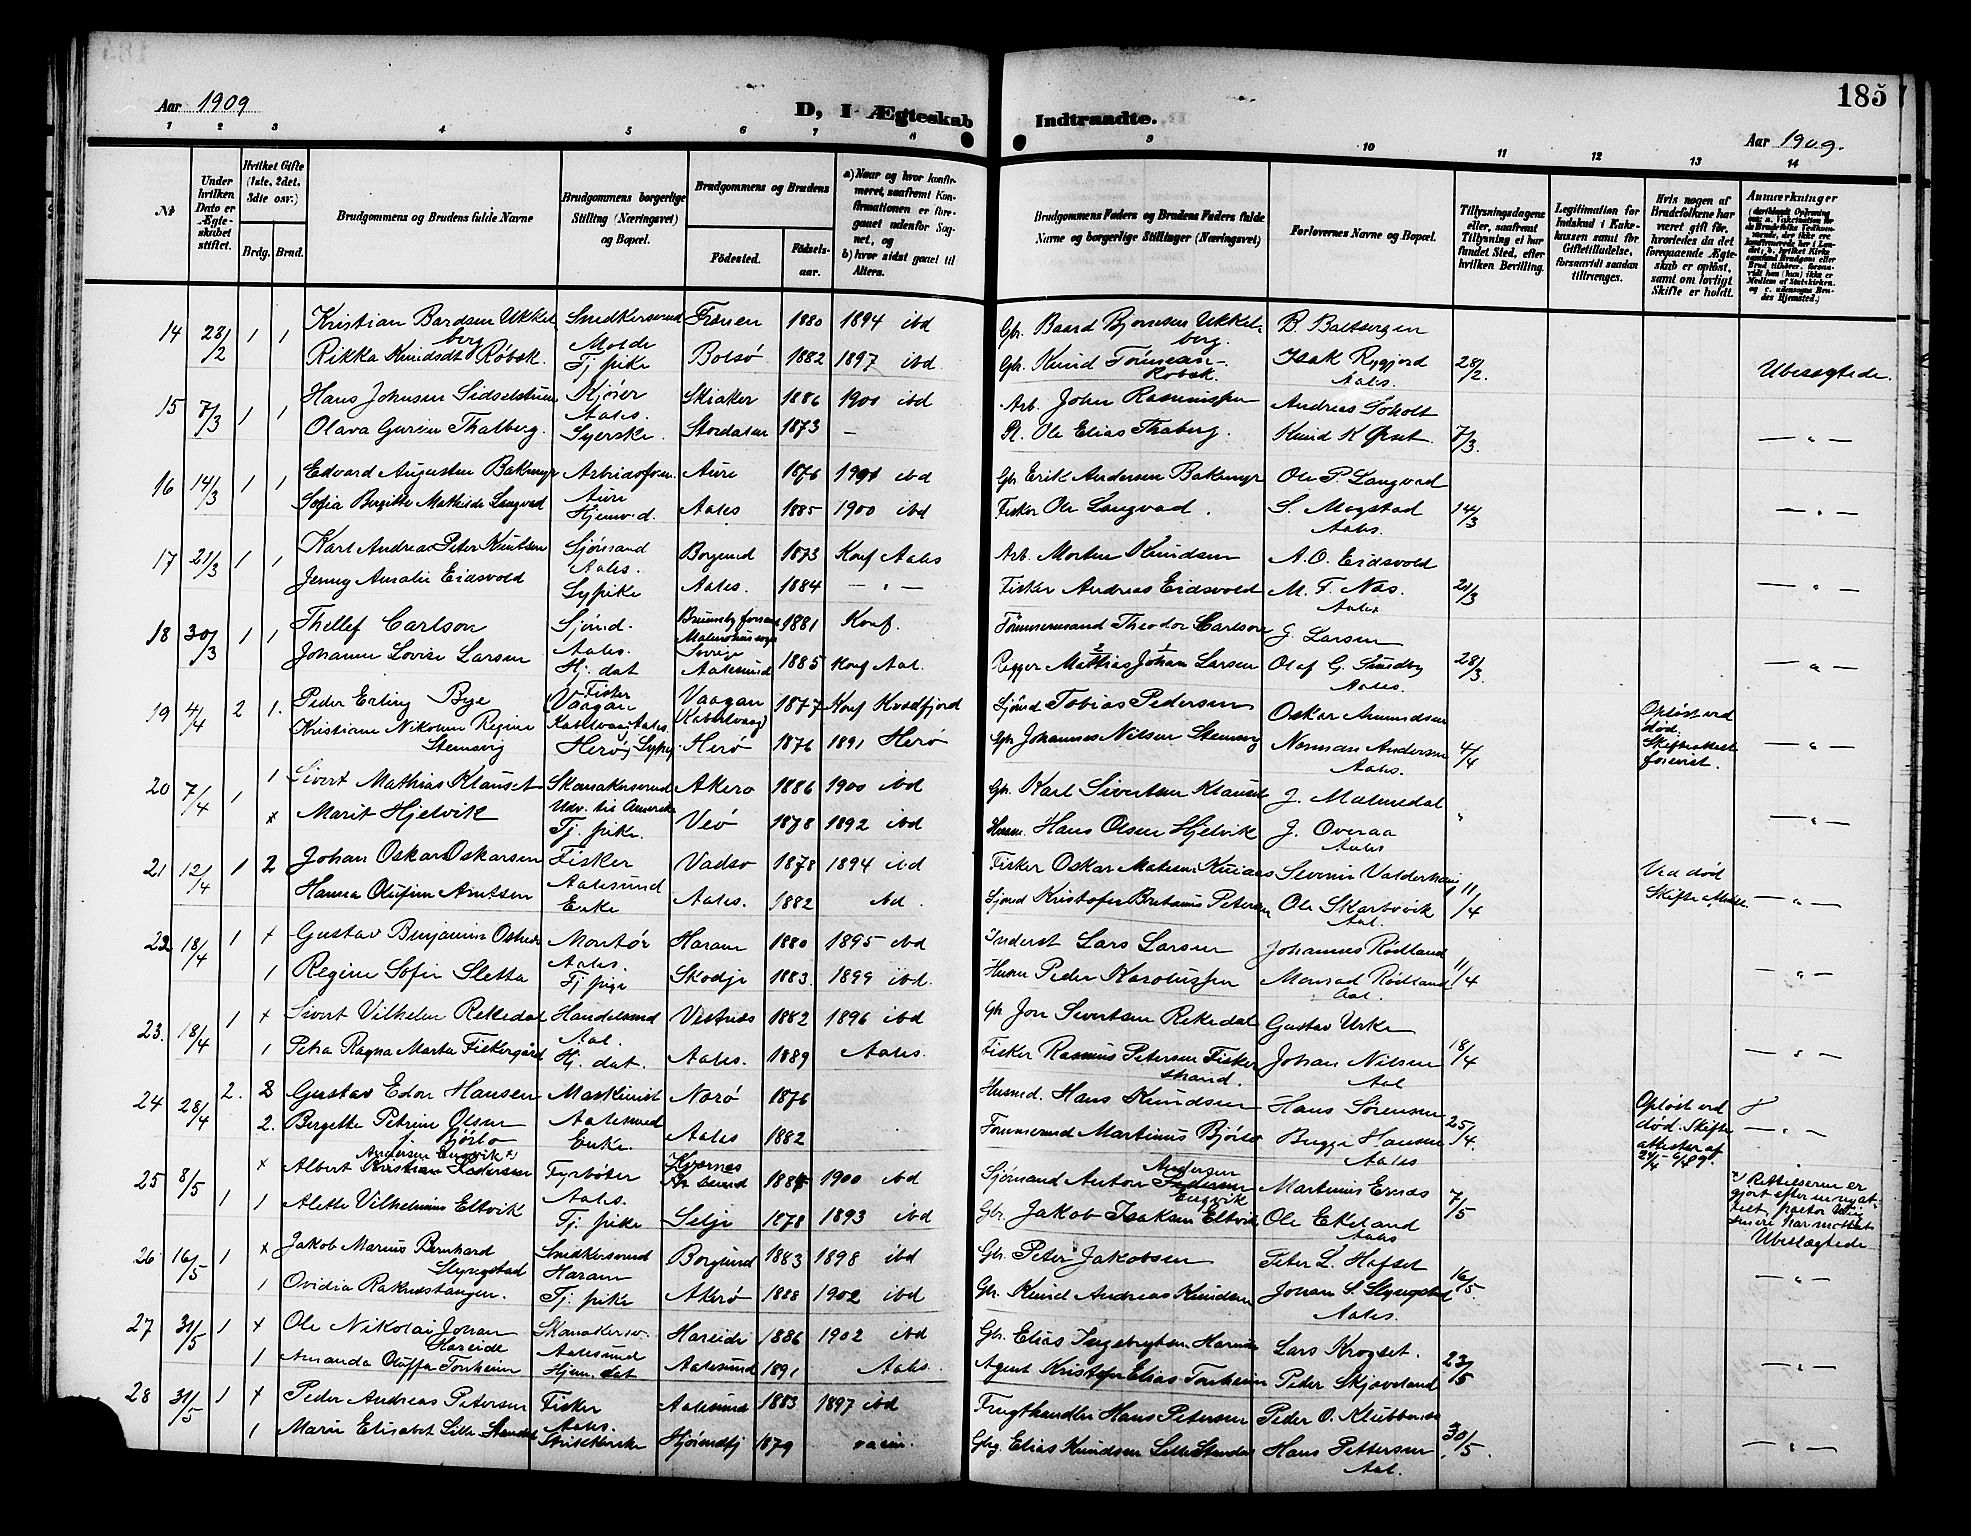 185
Aar 1909
D, I Ægteskab Indtraadte.
Aar 1909.
1 2 3 4 5 6 7 8 9 10 11 12 13 14
No
Under hvilken Dato er Ægteskabet stiftet.
Hvilket Gifte (1ste, 2det, 3die osv.)
Brdg. Brud.
Brudgommens og Brudens fulde Navne
Brudgommens borgerlige Stilling (Næringsvei) og Bopæl.
Brudgommens og Brudens
Fødested. Fødselsaar.
a) Naar og hvor konfirmeret, saafremt Konfirmationen er foregaaet udenfor Sognet, og
b) hvor sidst gaaet til Alters.
Brudgommens Faders og Brudens Faders fulde Navne og borgerlige Stillinger (Næringsvei)
Forlovernes Navne og Bopæl.
Tillysningsdagene eller, saafremt Tillysning ei har fundet Sted, efter hvilken Bevilling.
Legitimation for Indskud i Enkekassen samt for Giftetilladelse, forsaavidt saadan tiltrænges.
Hvis nogen af Brudefolkene har været gift før, hvorledes da det foregaaende Ægteskab er opløst, samt om lovligt Skifte er holdt.
Anmærkninger
14 28/2 1 1 Kristian Bardsen Ukkelberg Snedkersvend Molde Frænen 1880 1894 ibd Gbr. Baard Bjørnsen Ukkelberg. B. Baltzersen
Rikka Knudsdt Røbæk. Tj. pike Bolsø 1882 1897 ibd Gbr. Knud Røbæk. Isak Rygjord Aales. 28/2. Ubeslægtede.
15 7/3 1 1 Hans Johnsen Kjører Aales. Skiaker 1886 1900 ibd Arb. John Rasmussen Andreas Soholt
Olava Thalberg. Syerske. Stordalen 1873 — Ole Elias Knud K Ørset. 7/3. — " —
16 14/3 1 1 Edvard Augustin Bakmyr Aure Aure 1876 ibd Gbr. Erik Andersen Bakmyr Ole P. Langvad
Sofia Bergitte Mathilde Langvad Hjemv.d. Aales 1885 1900 ibd Fisker Ole Langvad. S. Mogstad Aales. 14/3 — " —
17 21/3 1 1 Karl Andreas Peter Knutsen Sjømand Aales. Borgund 1873 Konf Aales Arb. Morten Knudsen A. O. Eidsvold
Jenny Amalie Eidsvold Sypike Aales. 1884 — " — Fisker Andreas Eidsvold M. F. Næs. Aales 21/3 — " —
18 30/3 1 1 Thellef Carlson Sjømd. Aales. Sverige 1881 Konf. Tømmermand Theodor Carlson J. Larsen
Johanne Lovise Larsen Hj. dat Aalesund 1885 Konf Aal. Rigger Mathias Johan Larsen Olaf G. Sundby Aales. 28/3. — " —
19 4/4 2 1. Peder Erling Bye Fisker Vaagan Kabelvaag, Aales. Vaagan (Kabelvaag) 1877 Konf Kvædfjord Sjømd Tobias Pedersen Oskar Amundsen
Kristiane Nikoline Regine Stemsvig Herø, Sypig. Herø 1876 1891 Herø Gbr. Johannes Nilsen Stemsvg Norman Andersen Aales. 4/4 Opløst ved død. — " —
20 7/4 1 1 Sivert Mathias Klauset Akerø 1886 1900 ibd Gbr. Karl Sivertsen Klauset J. Malmedal
x Marit Hjelvik Udv. til Amerika Tj. pike. Veø 1878 1892 ibd Husm. Hans Olsen Hjelvik J. Overaa Aales " — " —
21 12/4 1 2 Johan Oskar Oskarsen Fisker Aalesund Vadsø 1878 1894 ibd Fisker Oskar Severin Valderhaug
Hanna Olufine Arntsen Enke Aales. 1882 ibd. Sjømd Kristofer Petersen Ole Skarbøvik Aal. 11/4 Ved død — " —
22 18/4 1 x Gustav Benjamin Montør Aales. Haram 1880 1895 ibd Inderst Lars Larsen Johannes Rødland
1 Regine Sofie Sletta Tj pige Skodje 1883. 1899 ibd. Husm Peder Karolussen Monrad Rødland Aal. 11/4 — " —
23. 18/4 1 x Sivert Vilhelm Rekkedal Handelsmd Aal. Vestnes 1882 1896 ibd Gbr. Jon Sivertsen Rekedal Gustav Urke
1 Petra Ragna Marta Fiskergård Hj. dat. Aales. 1889 Aales. Fisker Rasmus Petersen Fiskerstrand. Johan Nilsen Aal 18/4 — " —
24 28/4 2. 2 Gustav Edor Hansen Maskinist Aalesund Nærø 1876 Husmd. Hans Knudsen Hans Sørensen
2. Bergitte Petrine Olsen f. Bjørlo Enke Aales 1882 Tømmermd Martinus Bjørlo Bugge Hansen Aales 25/4. Opløst ved død. Skifteattester af — " —
25 8/5 1 x Albert Kristian Pedersen Andersen Engvik x) Fyrbøter Aales. Kvernes 1885 1900 ibd Sjømand Anton Andersen Engvik Martinus Ernæs
1 Alette Vilhelmine Eltvik Tj. pike Selje 1878 1893 ibd Gbr. Jakob Isaksen Eltvik Ole Ekeland Aales 7/5
x) Rettelserne er gjort efter
Ubeslægtede
26 16/5 1 x Jakob Marius Bernhard Slyngstad Snedkersvend Haram Borgund 1883 1898 ibd Gbr. Peter Jakobsen Peter L. Hofset
1 Ovidia Rakndstangen. Tj. pike Akerø 1888 1902 ibd Gbr. Knud Andreas Knudsen Johan S. Slyngstad Aales. 16/5. — " —
27 31/5 1 x Ole Nikolai Johan Hareide Aalesund Hareide 1886 1902 ibd Gbr. Elias Ingebrigtsen Lars Krogset.
1 Amanda Oluffa Tonheim Hjem. dat Aalesund 1891 Aales. Agent Kristofer Elias Tonheim Peder Skjaveland 23/5 — " —
28 31/5 1 x Peder Andreas Petersen Fisker Aales. Aalesund 1883 1897 ibd Frugthandler Hans Petersen Peder O. Klubbenes
1 Marie Elisabet Lille Standal Hjørundfj 1879 Gbrg. Elias Knudsen Lille Standal Hans Pettersen Aal. 30/5. — " —